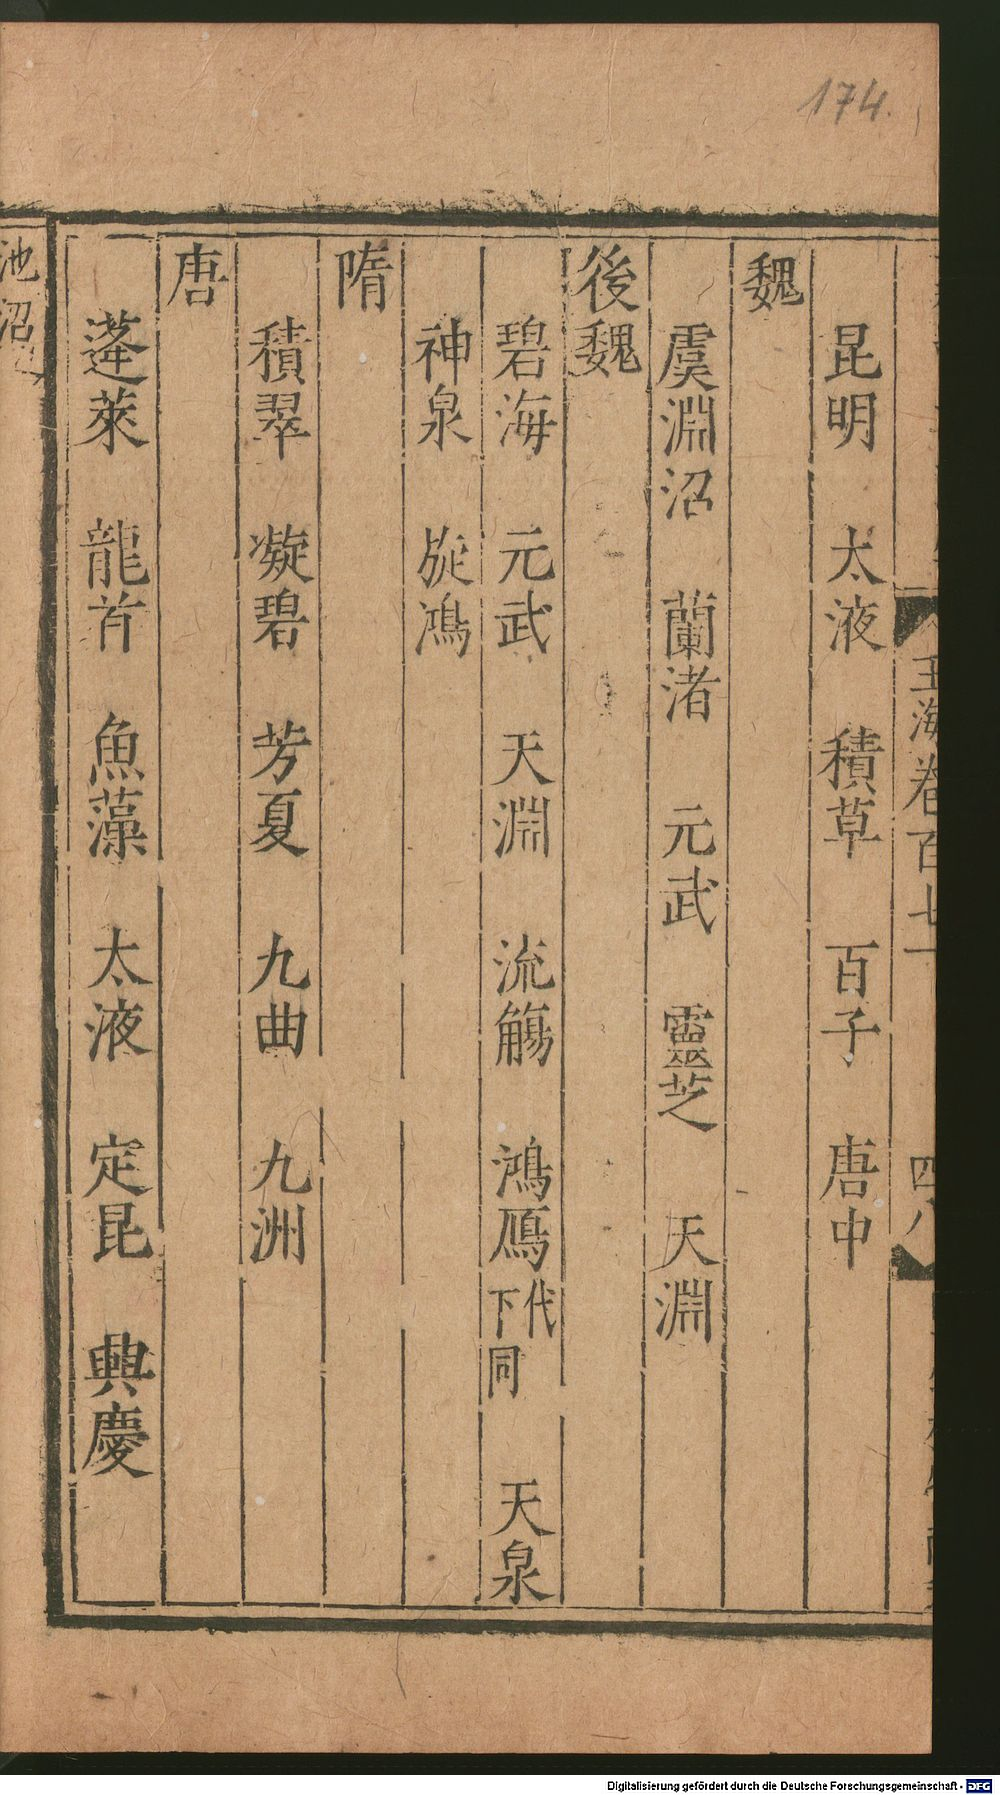 174.
玉海卷百七十一
四八
昆明 太液 積草 百子 唐中
魏
虞淵沼 蘭渚 元武 靈芝 天淵
後魏
碧海 元武 天淵 流觴 鴻鴈代下同 天泉
神泉 旋鴻
隋
積翠 凝碧 芳夏 九曲 九洲
唐
蓬萊 龍首 魚藻 太液 定昆 興慶
池沼
Digitalisierung gefördert durch die Deutsche Forschungsgemeinschaft - DFG